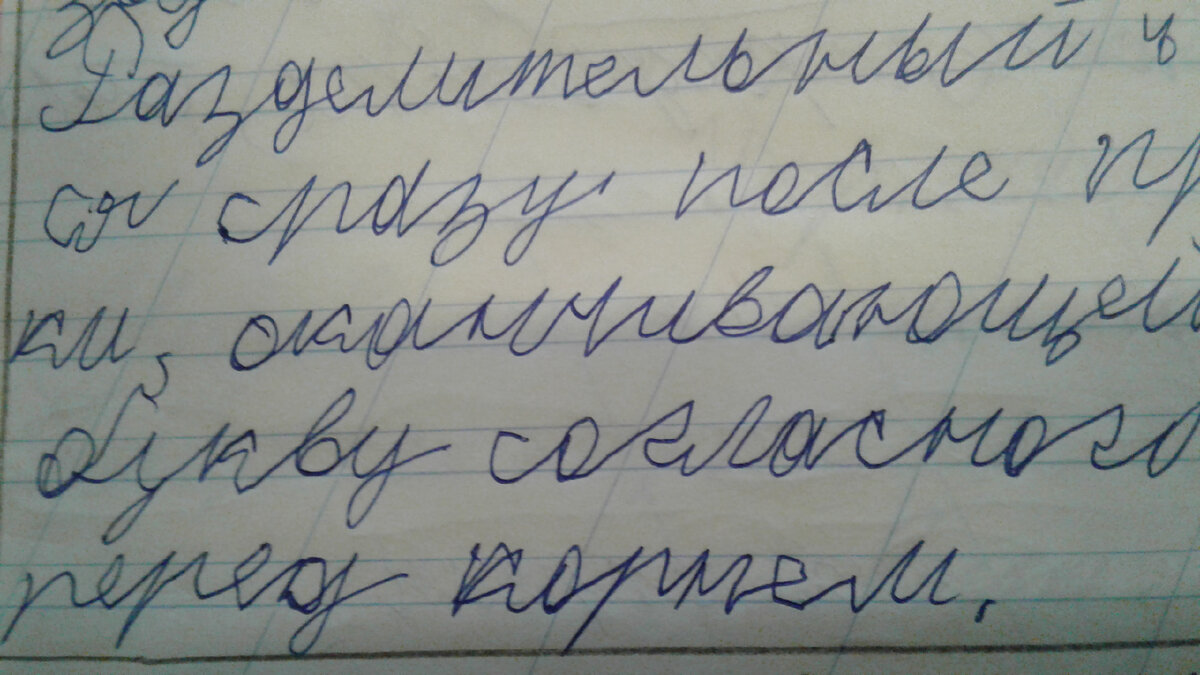 Разделительный ъ
ся сразу после пр
ки, оканчивающей
букву согласного
перед корнем.